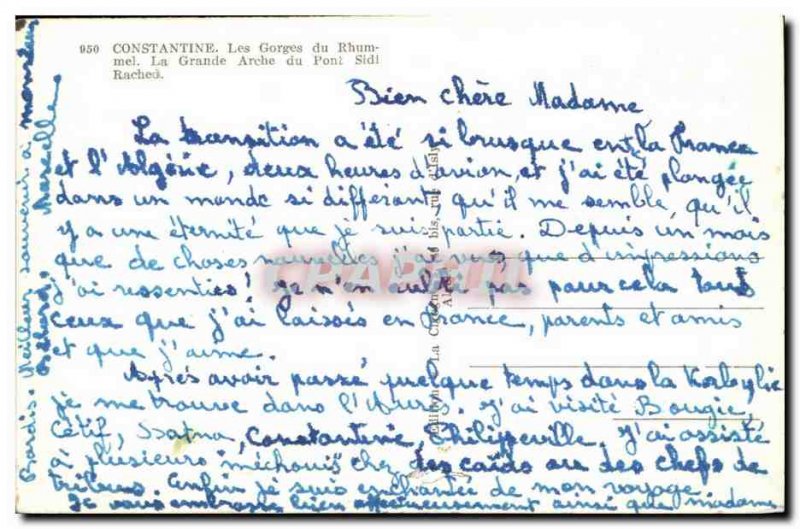 950 CONSTANTINE. Les Gorges du Rhum-
mel. La Grande Arche du Pont Sidi
Rached.
Bien chère Madame
La transition a été si brusque entre la France
et l'Algérie, deux heures d'avion, et j'ai été plongée
dans un monde si différent qu'il me semble qu'il
y a une éternité que je suis partie. Depuis un mois
que de choses nouvelles j'ai vues que d'impressions
j'ai ressenties! Je n'en oublie pas pour cela tous
ceux que j'ai laissés en France, parents et amis
et que j'aime.
Après avoir passé quelque temps dans la Kabylie
je me trouve dans l'Aurès. J'ai visité Bougie,
Cétif, Batna, Constantine, Philippeville. J'ai assisté
à plusieurs "méchouis" chez des caïds ou des chefs de
tribus. Enfin je suis enchantée de mon voyage
Je vous embrasse bien affectueusement ainsi que madame
Meilleur souvenir à monsieur
Marseille
bis, rue d'Isly
CPARAMA